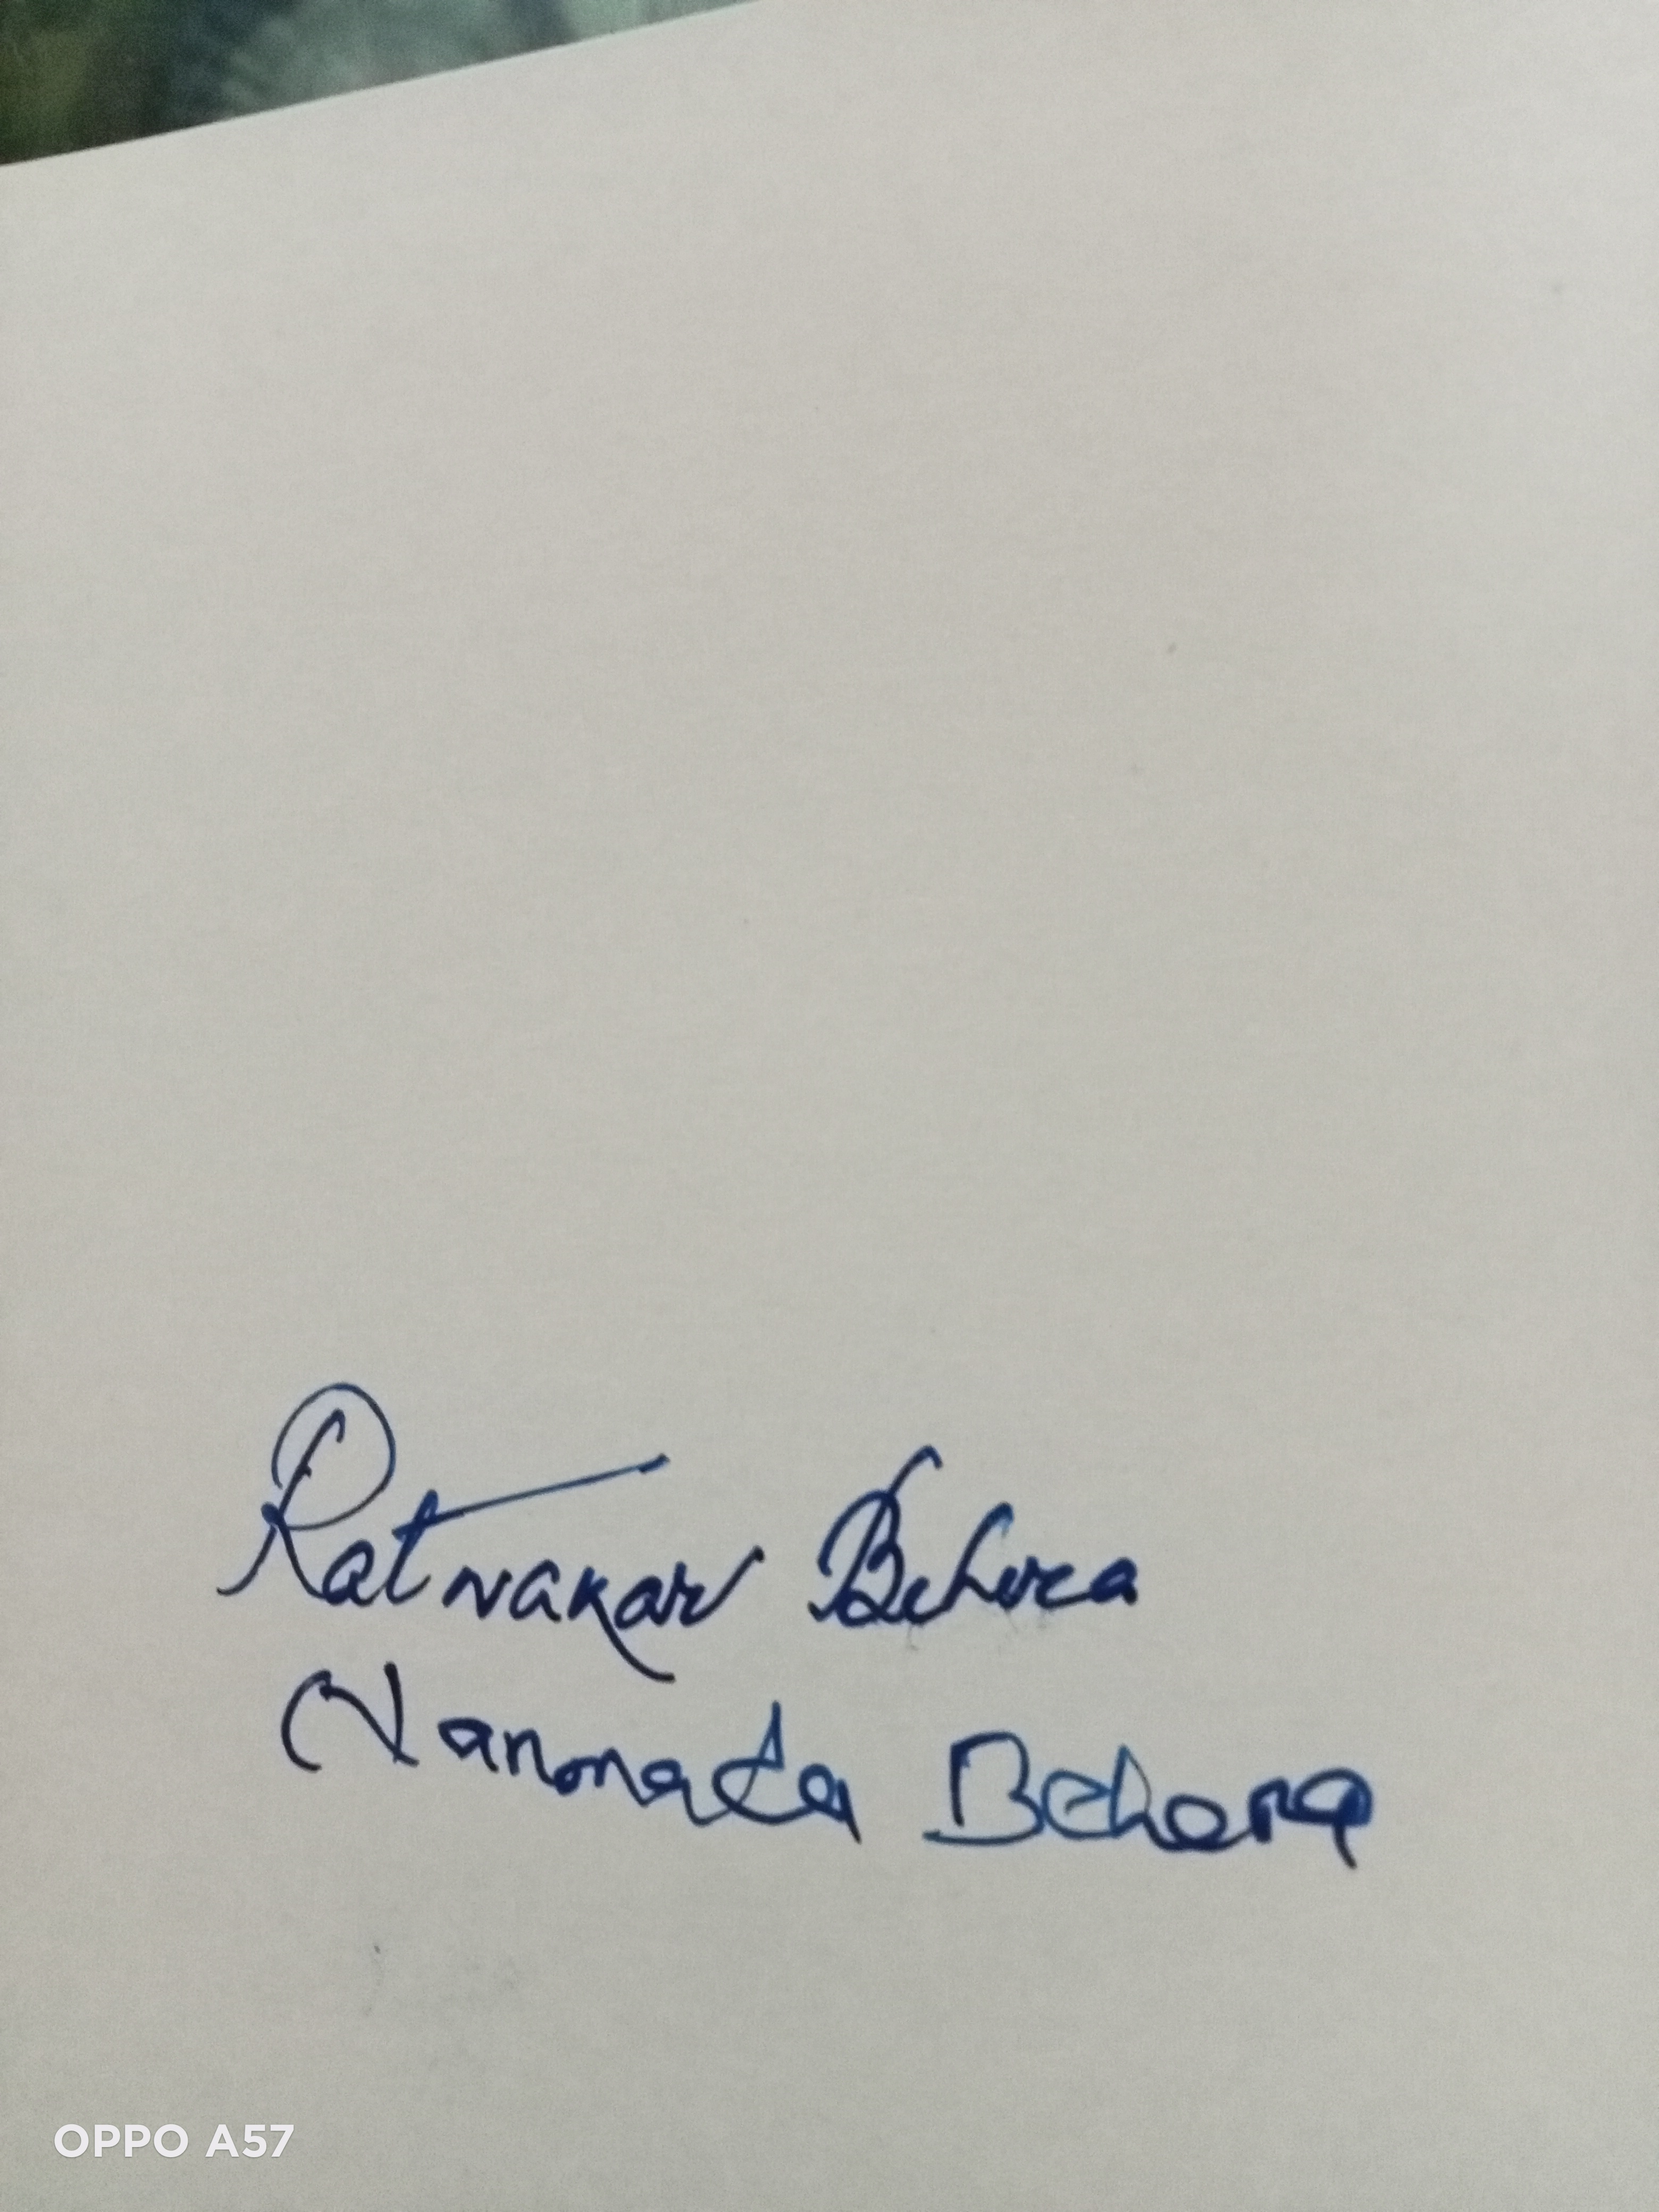 Ratnakar Behera
Narmada Behera
OPPO A57